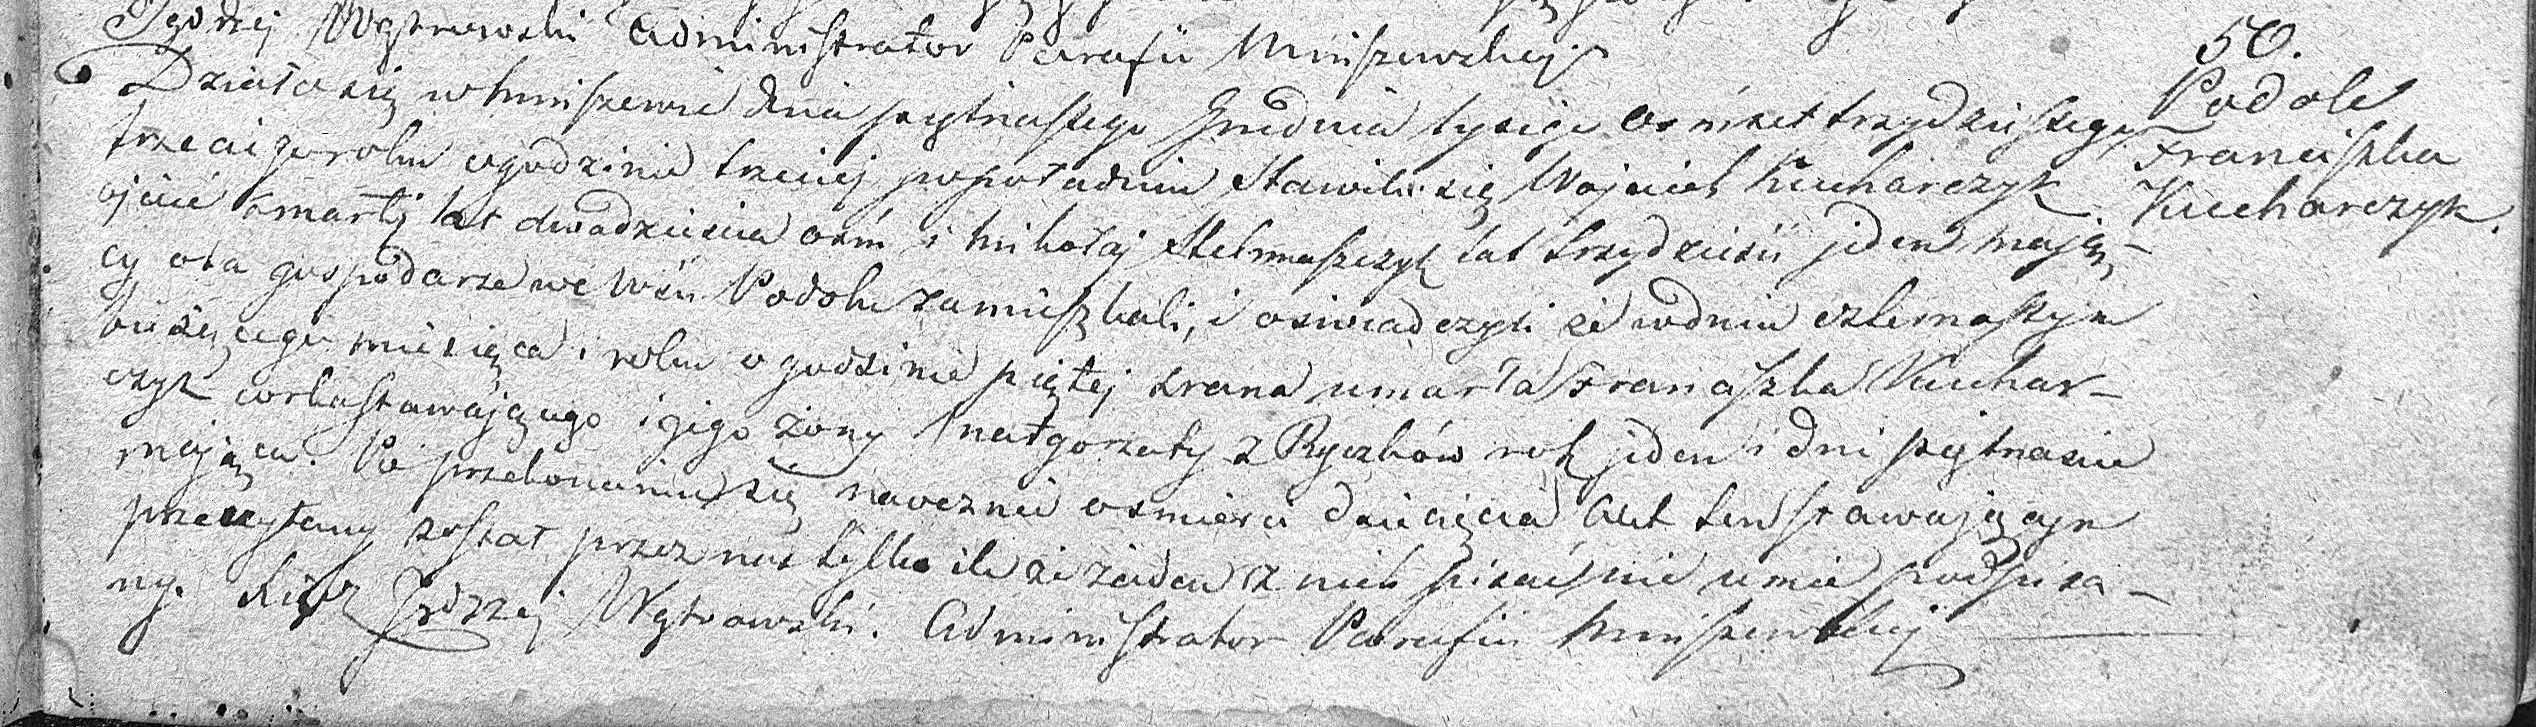 Jędrzej Wątrowski Administrator Parafii Mniszewskiej
50.
Podole
Franciszka
Kucharczyk.
Działo się w Mniszewie dnia piętnastego Grudnia tysiąc ośmset trzydziestego
trzeciego roku o godzinie trzeciej popołudniu Stawili się Wojciech Kucharczyk
ojciec zmarłej lat dwadzieścia ośm i Mikołaj Stelmaszczyk lat trzydzieści jeden mają-
cy oba gospodarze we Wsi Podolu zamieszkali, i oświadczyli że w dniu czternastym
bieżącego miesiąca i roku o godzinie piątej zrana umarła Franciszka Kuchar-
czyk corka stawającego i jego żony Małgorzaty z Ryczków rok jeden i dni piętnaście
mająca. Po przekonaniu się naocznie o śmierci dziecięcia Akt ten stawającym
przeczytany został przez nas tylko ile że żaden z nich pisać nie umie podpisa-
ny. Xiądz Jędrzej Wątrowski. Administrator Parafii Mniszewskiej